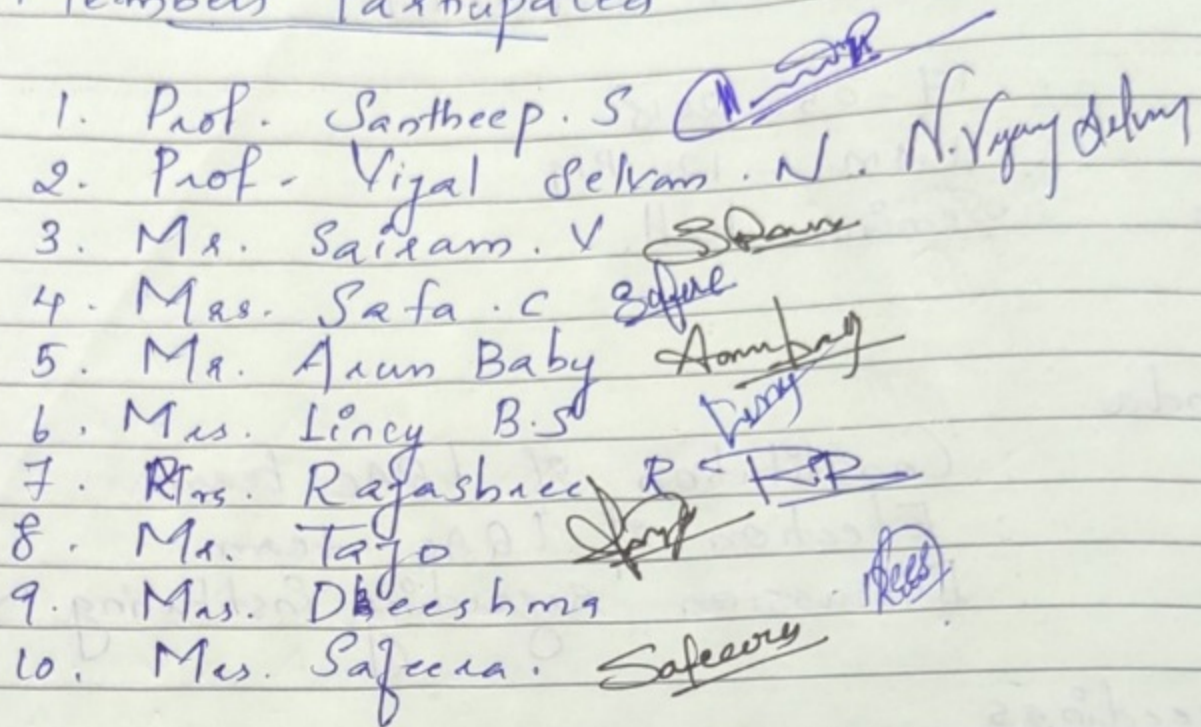 Members Participated
1. Prof. Santheep. S
2. Prof. Vijal Selvan. N. N. Vijay Selvan
3. Mr. Sairam. V
4. Mrs. Safa. C
5. Mr. Arun Baby
6. Mrs. Lincy B.S
7. Mrs. Rajashree R
8. Mr. Tajo
9. Mrs. Dheeshma
10. Mrs. Safeera.